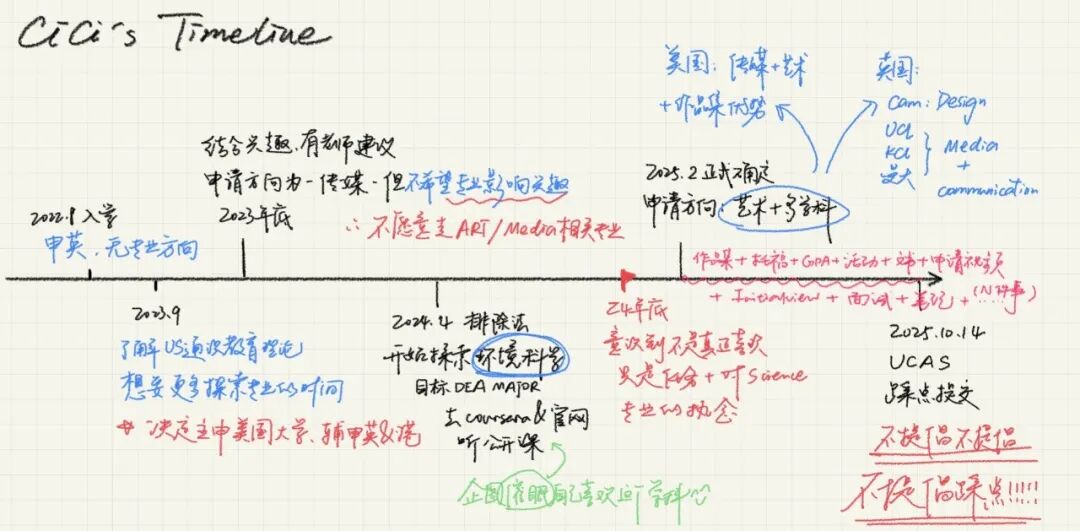 CiCi's Timeline
美国：传媒+艺术
+作品集优势
英国：
Cam：Design
UCL
KCL
曼大
Media
+
communication
结合兴趣、有老师建议
申请方向为-传媒-但不希望专业影响兴趣
2023年底
∴不愿意走ART/Media相关专业
2022.9入学
申英、无专业方向
2025.2正式确定
申请方向：艺术+多学科
作品集+托福+GPA+活动+文书+申请视频
+Initialview+面试+笔记+(N件事)
2023.9
了解US通识教育理论
想要更多探索专业的时间
决定主申美国大学、辅申英&港
2024.4 排除法
开始探索环境科学
目标DEA MAJOR
去coursera&官网
听公开课
企图催眠自己喜欢这个学科
24年底
意识到不是真正喜欢
只是任务+对Science
专业的执念
2025.10.14
UCAS
踩点提交
不提倡不提倡
不提倡踩点!!!!!